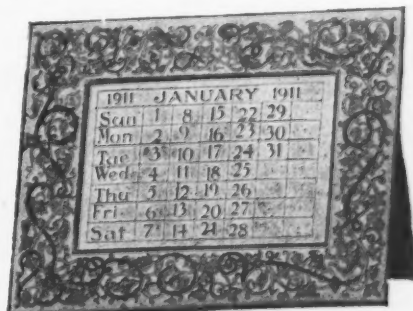 1911 JANUARY 1911
Sun 1 8 15 22 29
Mon 2 9 16 23 30
Tue 3 10 17 24 31
Wed 4 11 18 25
Thu 5 12 19 26
Fri 6 13 20 27
Sat 7 14 21 28